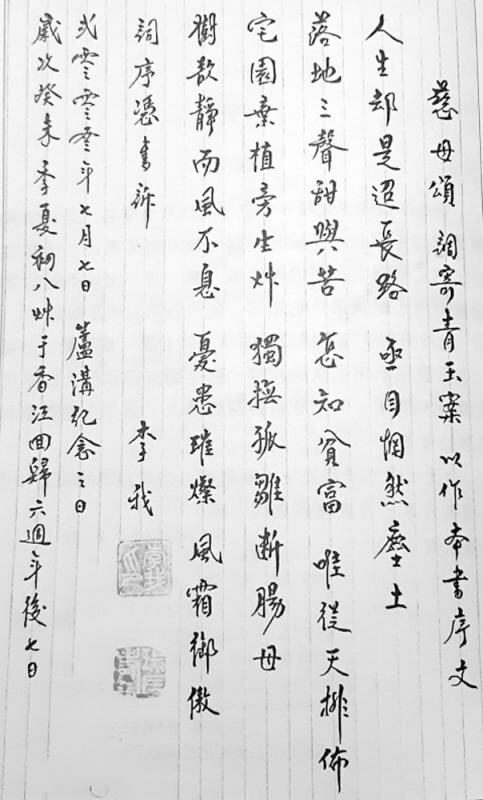 慈母頌 調寄青玉案 以作本書序文
人生却是迢長路 亟目惘然塵土
落地三聲甜與苦 怎知貧富 唯從天排佈
宅園棄植旁生艸 獨撫孤雛断腸母
樹欲靜而風不息 憂患璀燦 風霜御傲
詞序憑書訴 李我
弍零零叁年七月七日 蘆溝紀念之日
歲次癸未季夏初八艸于香江回歸六週年後七日